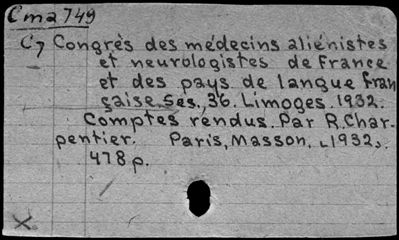 Cma 749
C7 Congrès des médecins aliénistes
et neurologistes de France
et des pays de langue fran
çaise. Ses., 36. Limoges. 1932.
Comptes rendus. Par R. Char-
pentier. Paris, Masson, [1932].
478 p.
X